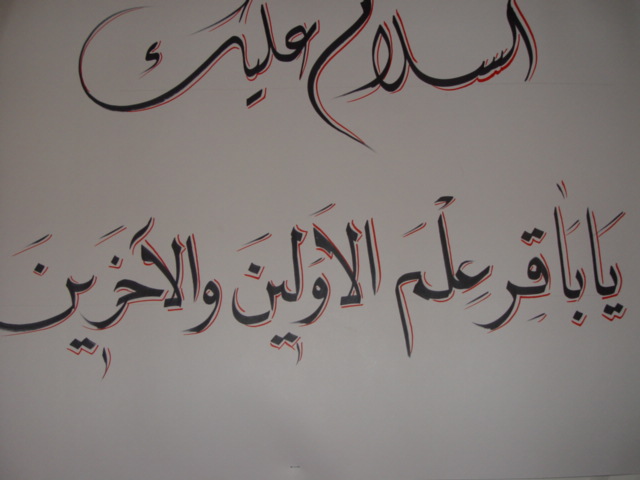 السلام عليك
يا بَاقِرِ عِلْمَ الاَوَلينَ والآخَرينَ